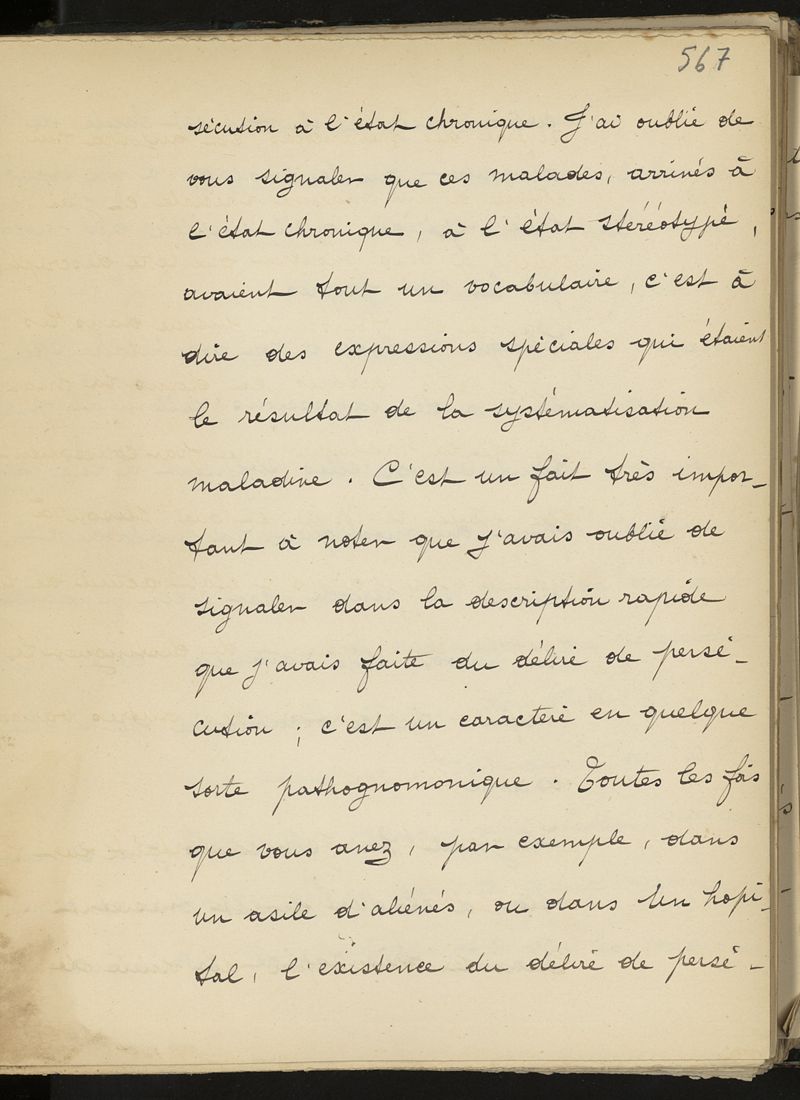 567
sécution à l'état chronique. J'ai oublié de
vous signaler que ces malades, arrivés à
l'état chronique, à l'état stéréotypé,
avaient tout un vocabulaire, c'est à
dire des expressions spéciales qui étaient
le résultat de la systématisation
maladive. C'est un fait très impor-
tant à noter que j'avais oublié de
signaler dans la description rapide
que j'avais faite du délire de persé-
cution ; c'est un caractère en quelque
sorte pathognomonique. Toutes les fois
que vous avez, par exemple, dans
un asile d'aliénés, ou dans un hopi-
tal, l'existence du délire de persé-